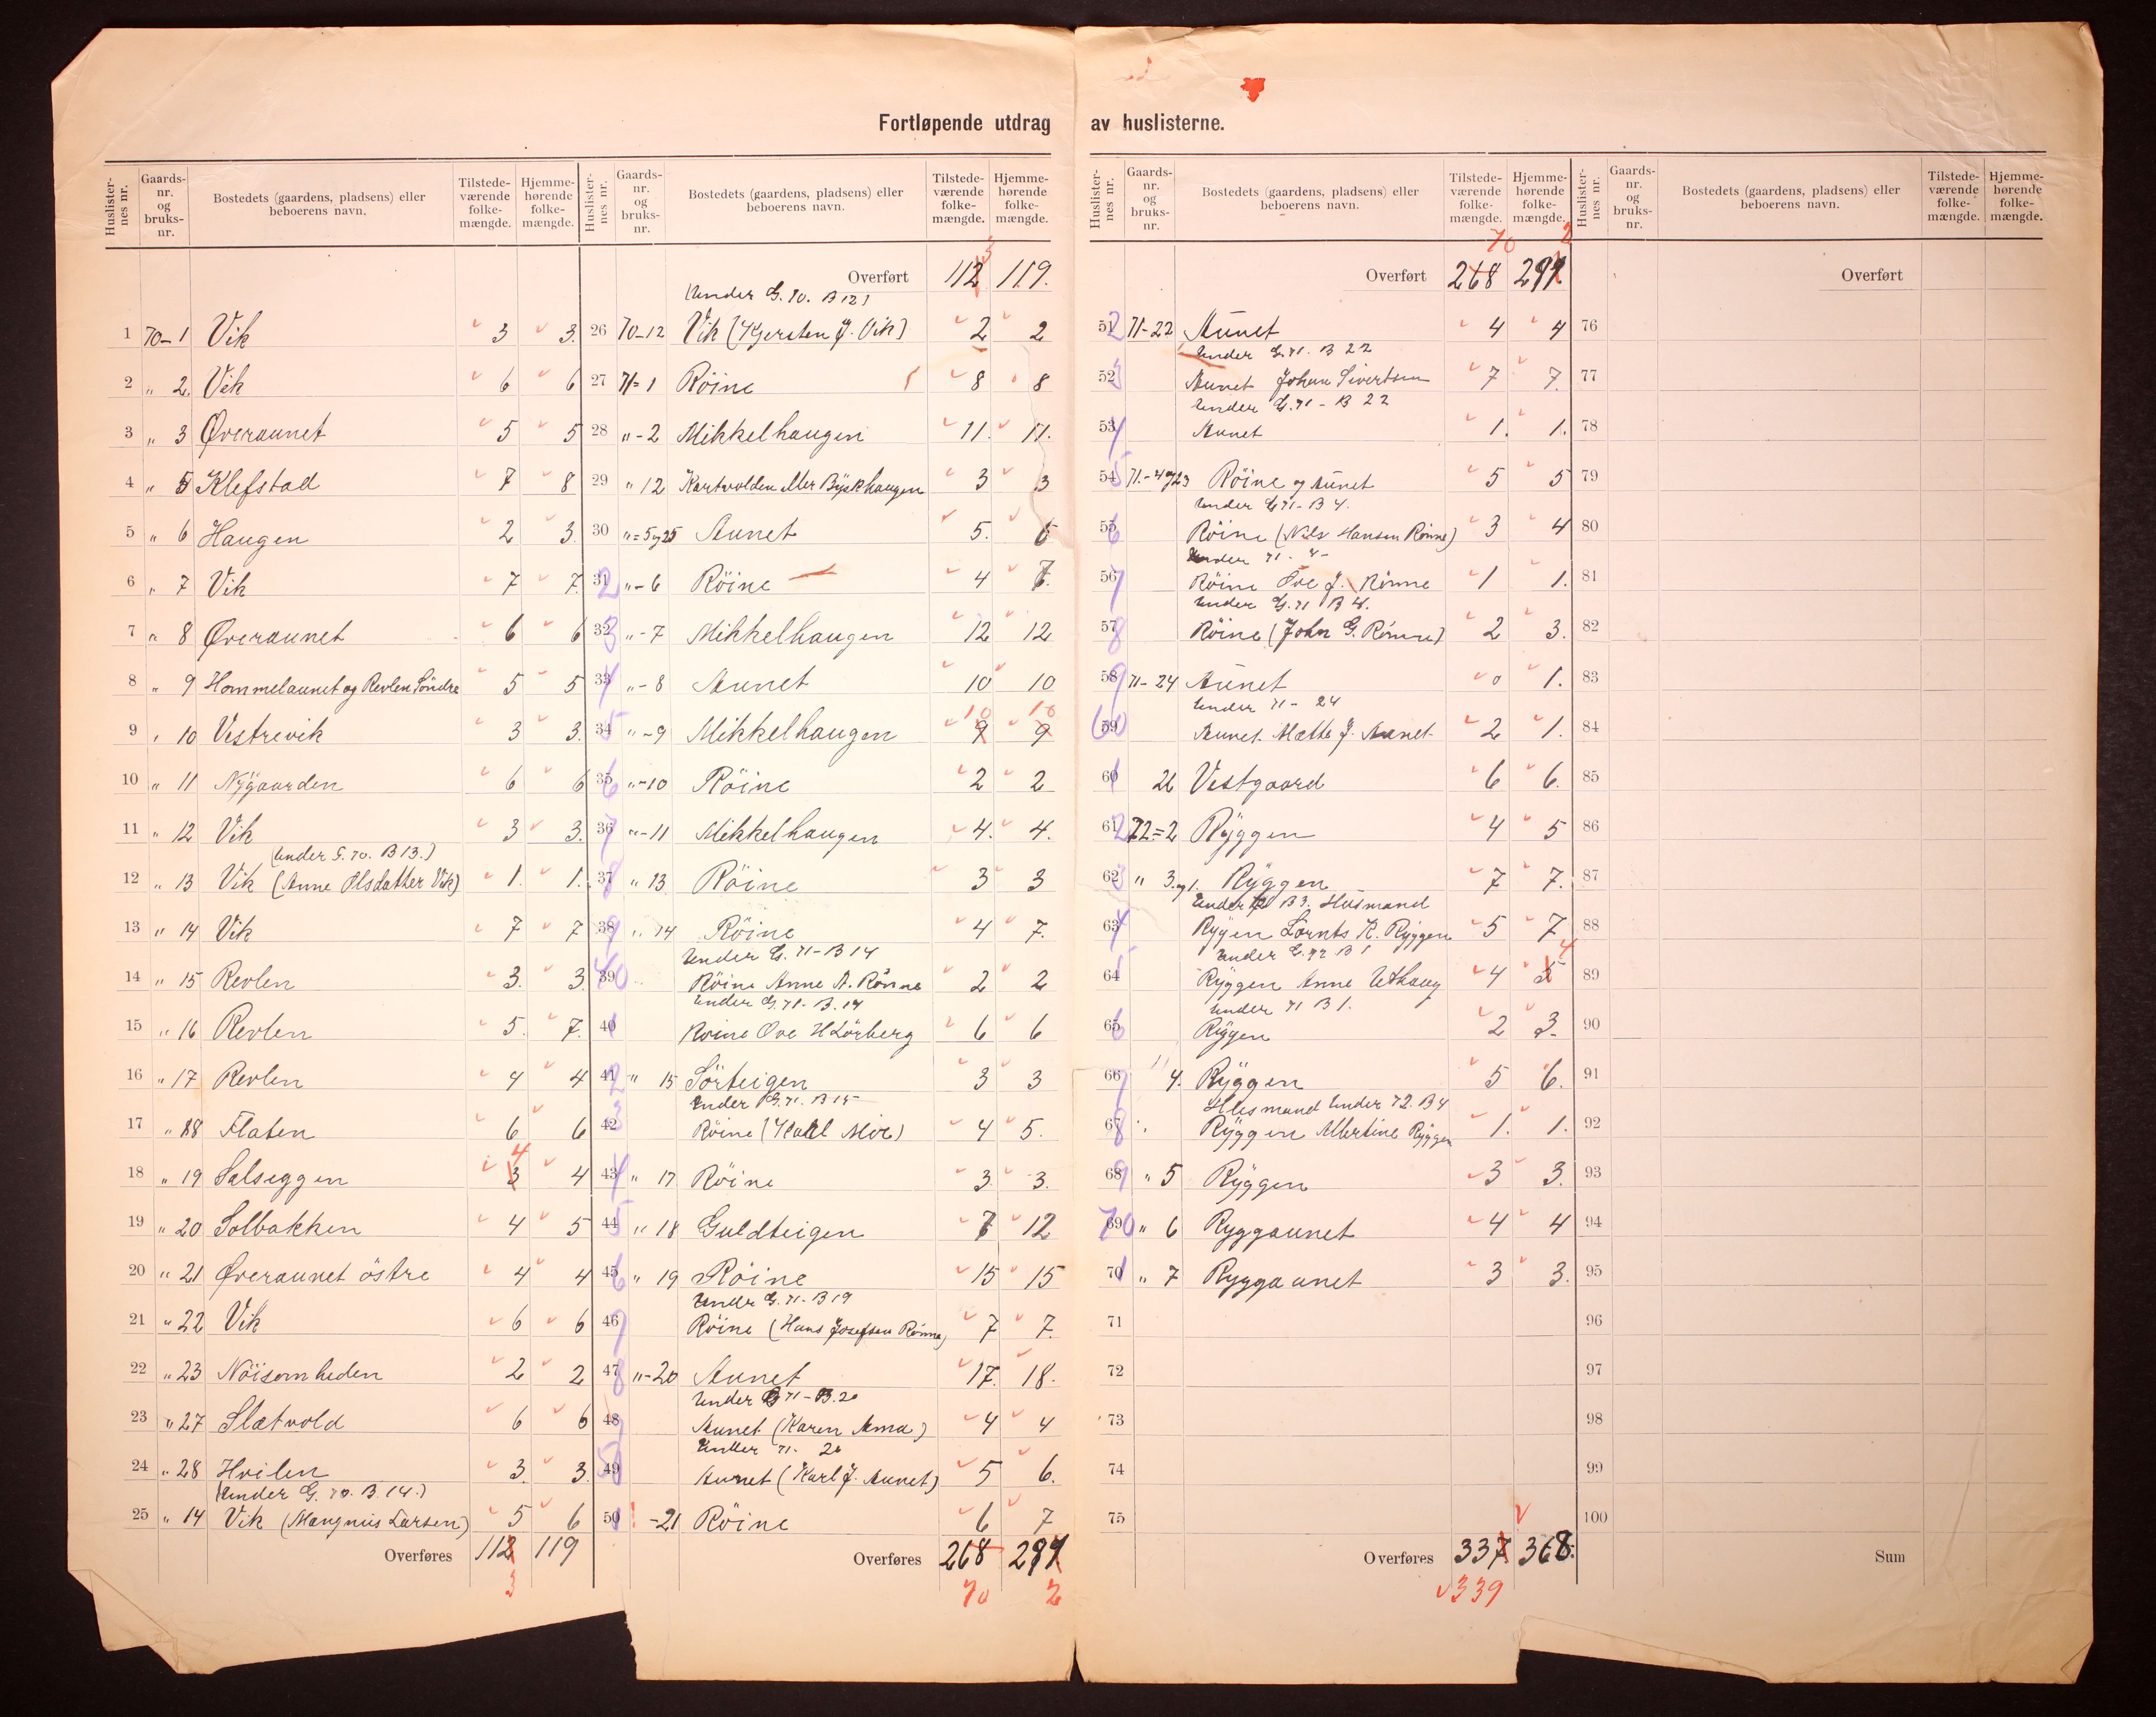 Fortløpende utdrag av huslisterne.
Huslisternes nr. Gaardsnr. og bruksnr. Bostedets (gaardens, pladsens) eller beboerens navn. Tilstedeværende folkemængde. Hjemmehørende folkemængde.
1 70-1 Vik 3 3.
2 " 2. Vik 6 6
3 " 3 Øveraunet 5 5
4 " 5 Klefstad 7 8
5 " 6 Haugen 2 3.
6 " 7 Vik 7 7.
7 " 8 Øveraunet 6 6
8 " 9 Hommelaunet og Revlen Söndre 5 5
9 " 10 Vestrevik 3 3.
10 " 11 Nÿgaarden 6 6
11 " 12 Vik 3 3.
(Under G. 70. B 13.)
12 " 13 Vik (Anne Olsdatter Vik) 1. 1.
13 " 14 Vik 7 7
14 " 15 Revlen 3. 3.
15 " 16 Revlen 5. 7.
16 " 17 Revlen 4 4
17 " 18 Flaten 6 6
18 " 19 Salseggen 3 4 4
19 " 20 Solbakken 4 5
20 " 21 Øveraunet östre 4 4
21 " 22 Vik 6 6
22 " 23 Nöisomheden 2 2
23 " 27 Slætvold 6 6
24 " 28 Hvilen 3. 3.
(Under G. 70. B. 14.)
25 " 14 Vik (Mangnus Larsen) 5 6
Overføres 112 119
3
Huslisternes nr. Gaardsnr. og bruksnr. Bostedets (gaardens, pladsens) eller beboerens navn. Tilstedeværende folkemængde. Hjemmehørende folkemængde.
Overført 112 3 119.
(Under G. 70. B 12)
26 70-12 Vik (Kjersten J. Vik) 2 2
27 71=1 Röine 8 8
28 "-2 Mikkelhaugen 11. 11.
29 " 12 Kartvolden eller Byskhaugen 3 3
30 "=5 og 25 Aunet 5. 6
31 2 "-6 Röine 4 7.
32 3 "-7 Mikkelhaugen 12 12
33 4 "-8 Aunet 10 10
34 5 "-9 Mikkelhaugen 9 10 9 10
35 6 "-10 Röine 2 2
36 7 "-11 Mikkelhaugen 4. 4.
37 8 " 13 Röine 3 3
38 9 " 14 Röine 4 7.
Under G. 71-B 14
39 40 Röine Anne A. Rönne 2 2
Under G. 71. B. 14
40 1 Röine Ove H Lörberg 6 6
41 2 " 15 Sörteigen 3 3
Under G. 71. B 15
42 3 Röine (Karl Moe) 4 5.
43 4 " 17 Röine 3 3.
44 5 " 18 Guldteigen 7 12
45 6 " 19 Röine 15 15
Under G. 71-B 19
46 7 Röine (Hans Josefsen Rönne) 7 7.
47 8 "-20 Aunet 17. 18.
Under G 71-B. 20
48 9 Aunet (Karen Anna) 4 4
Under 71- 20
49 50 Aunet (Karl J. Aunet) 5 6.
50 1 -21 Röine 6 7
Overføres 268 291
70 2
Huslisternes nr. Gaardsnr. og bruksnr. Bostedets (gaardens, pladsens) eller beboerens navn. Tilstedeværende folkemængde. Hjemmehørende folkemængde.
70 2
Overført 268 291
51 2 71-22 Aunet 4 4
Under G. 71. B 22
52 3 Aunet Johan Sivertsen 7 7.
Under G. 71 - B 22
53 4 Aunet 1. 1.
54 5 71.-4 og 23 Röine og Aunet 5 5
Under G 71-B 4.
55 6 Röine (Nils Hansen Rönne) 3 4
Under 71. 4-
56 7 Röine Ove J. Rönne 1 1.
Under G. 71 B 4.
57 8 Röine (John G. Rönne) 2 3.
58 9 71-24 Aunet 0 1.
Under 71- 24
59 60 Aunet Mætte J. Aunet 2 1.
60 1 26 Vestgaard 6 6.
61 2 72=2 Ryggen 4 5
62 3 " 3. og 1. Ryggen 7 7.
Under 72 B 3. Husmand
63 4 Ryggen Lornts K. Ryggen 5 7
Under G. 72 B 1
64 5 Ryggen Anne Uthaug 4 5 4
Under 71 B 1.
65 6 Ryggen 2 3.
66 7 " 4. Ryggen 5 6.
Husmand Under 72. B 4
67 8 " Ryggen Albertine Ryggen 1. 1.
68 9 " 5 Ryggen 3 3.
69 70 " 6 Ryggaunet 4 4
70 1 " 7 Ryggaunet 3 3.
71
72
73
74
75
Overføres 337 368.
339
Huslisternes nr. Gaardsnr. og bruksnr. Bostedets (gaardens, pladsens) eller beboerens navn. Tilstedeværende folkemængde. Hjemmehørende folkemængde.
Overført
76
77
78
79
80
81
82
83
84
85
86
87
88
89
90
91
92
93
94
95
96
97
98
99
100
Sum